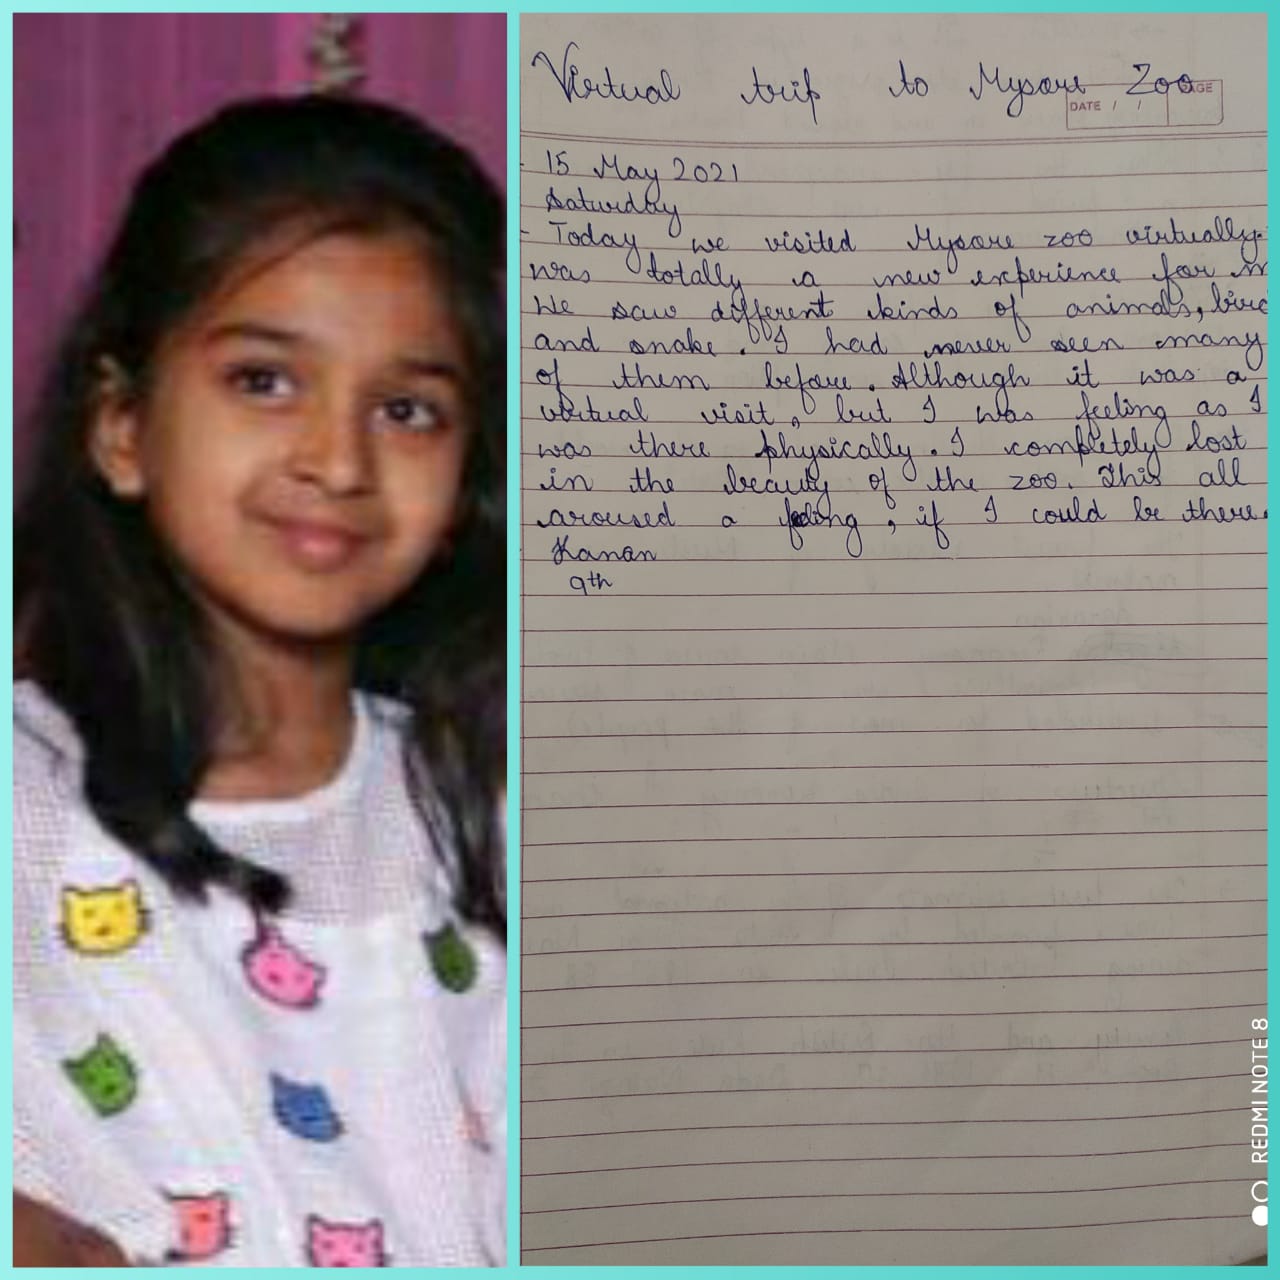 Virtual trip to Mysore Zoo
PAGE
DATE / /
15 May 2021
Saturday
Today we visited Mysore zoo virtually.
was totally a new experience for
We saw different kinds of animals,
and snake. I had never seen many
of them before. Although it was a
virtual visit, but I was feeling as I
was there physically. I completely lost
in the beauty of the zoo. This all
aroused a feeling, if I could be there.
Kanan
9th
REDMI NOTE 8